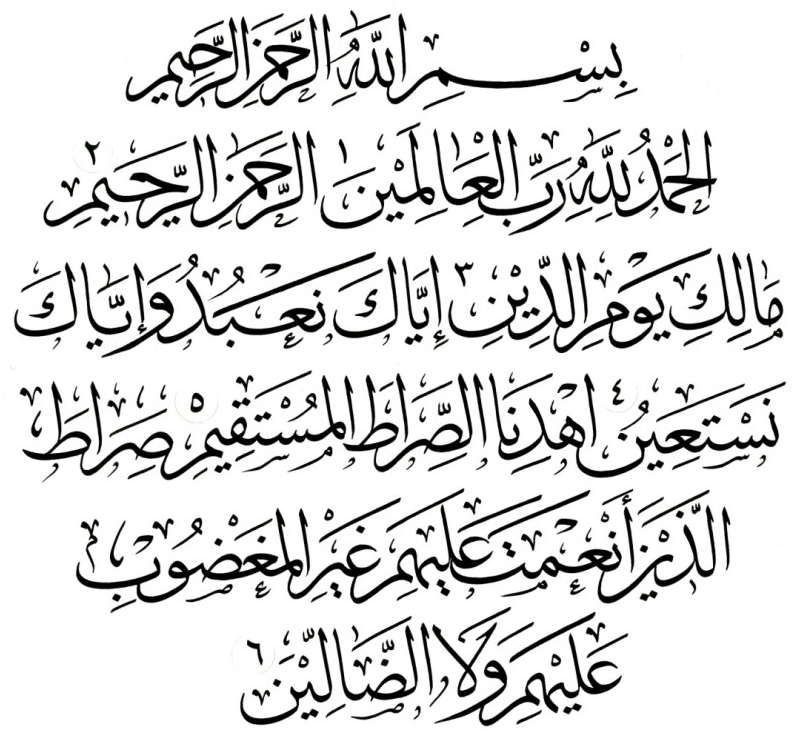 بِسْمِ اللَّهِ الرَّحْمَنِ الرَّحِيمِ
الْحَمْدُ لِلَّهِ رَبِّ الْعَالَمِيْنَ ١ الرَّحْمَنِ الرَّحِيمِ ٢
مَالِكِ يَوْمِ الدِّيْنِ ٣ إِيَّاكَ نَعْبُدُ وَإِيَّاكَ
نَسْتَعِيْنُ ٤ اهْدِنَا الصِّرَاطَ الْمُسْتَقِيْمَ ٥ صِرَاطَ
الَّذِيْنَ أَنْعَمْتَ عَلَيْهِمْ غَيْرِ الْمَغْضُوْبِ
عَلَيْهِمْ وَلَا الضَّالِّيْنَ ٦